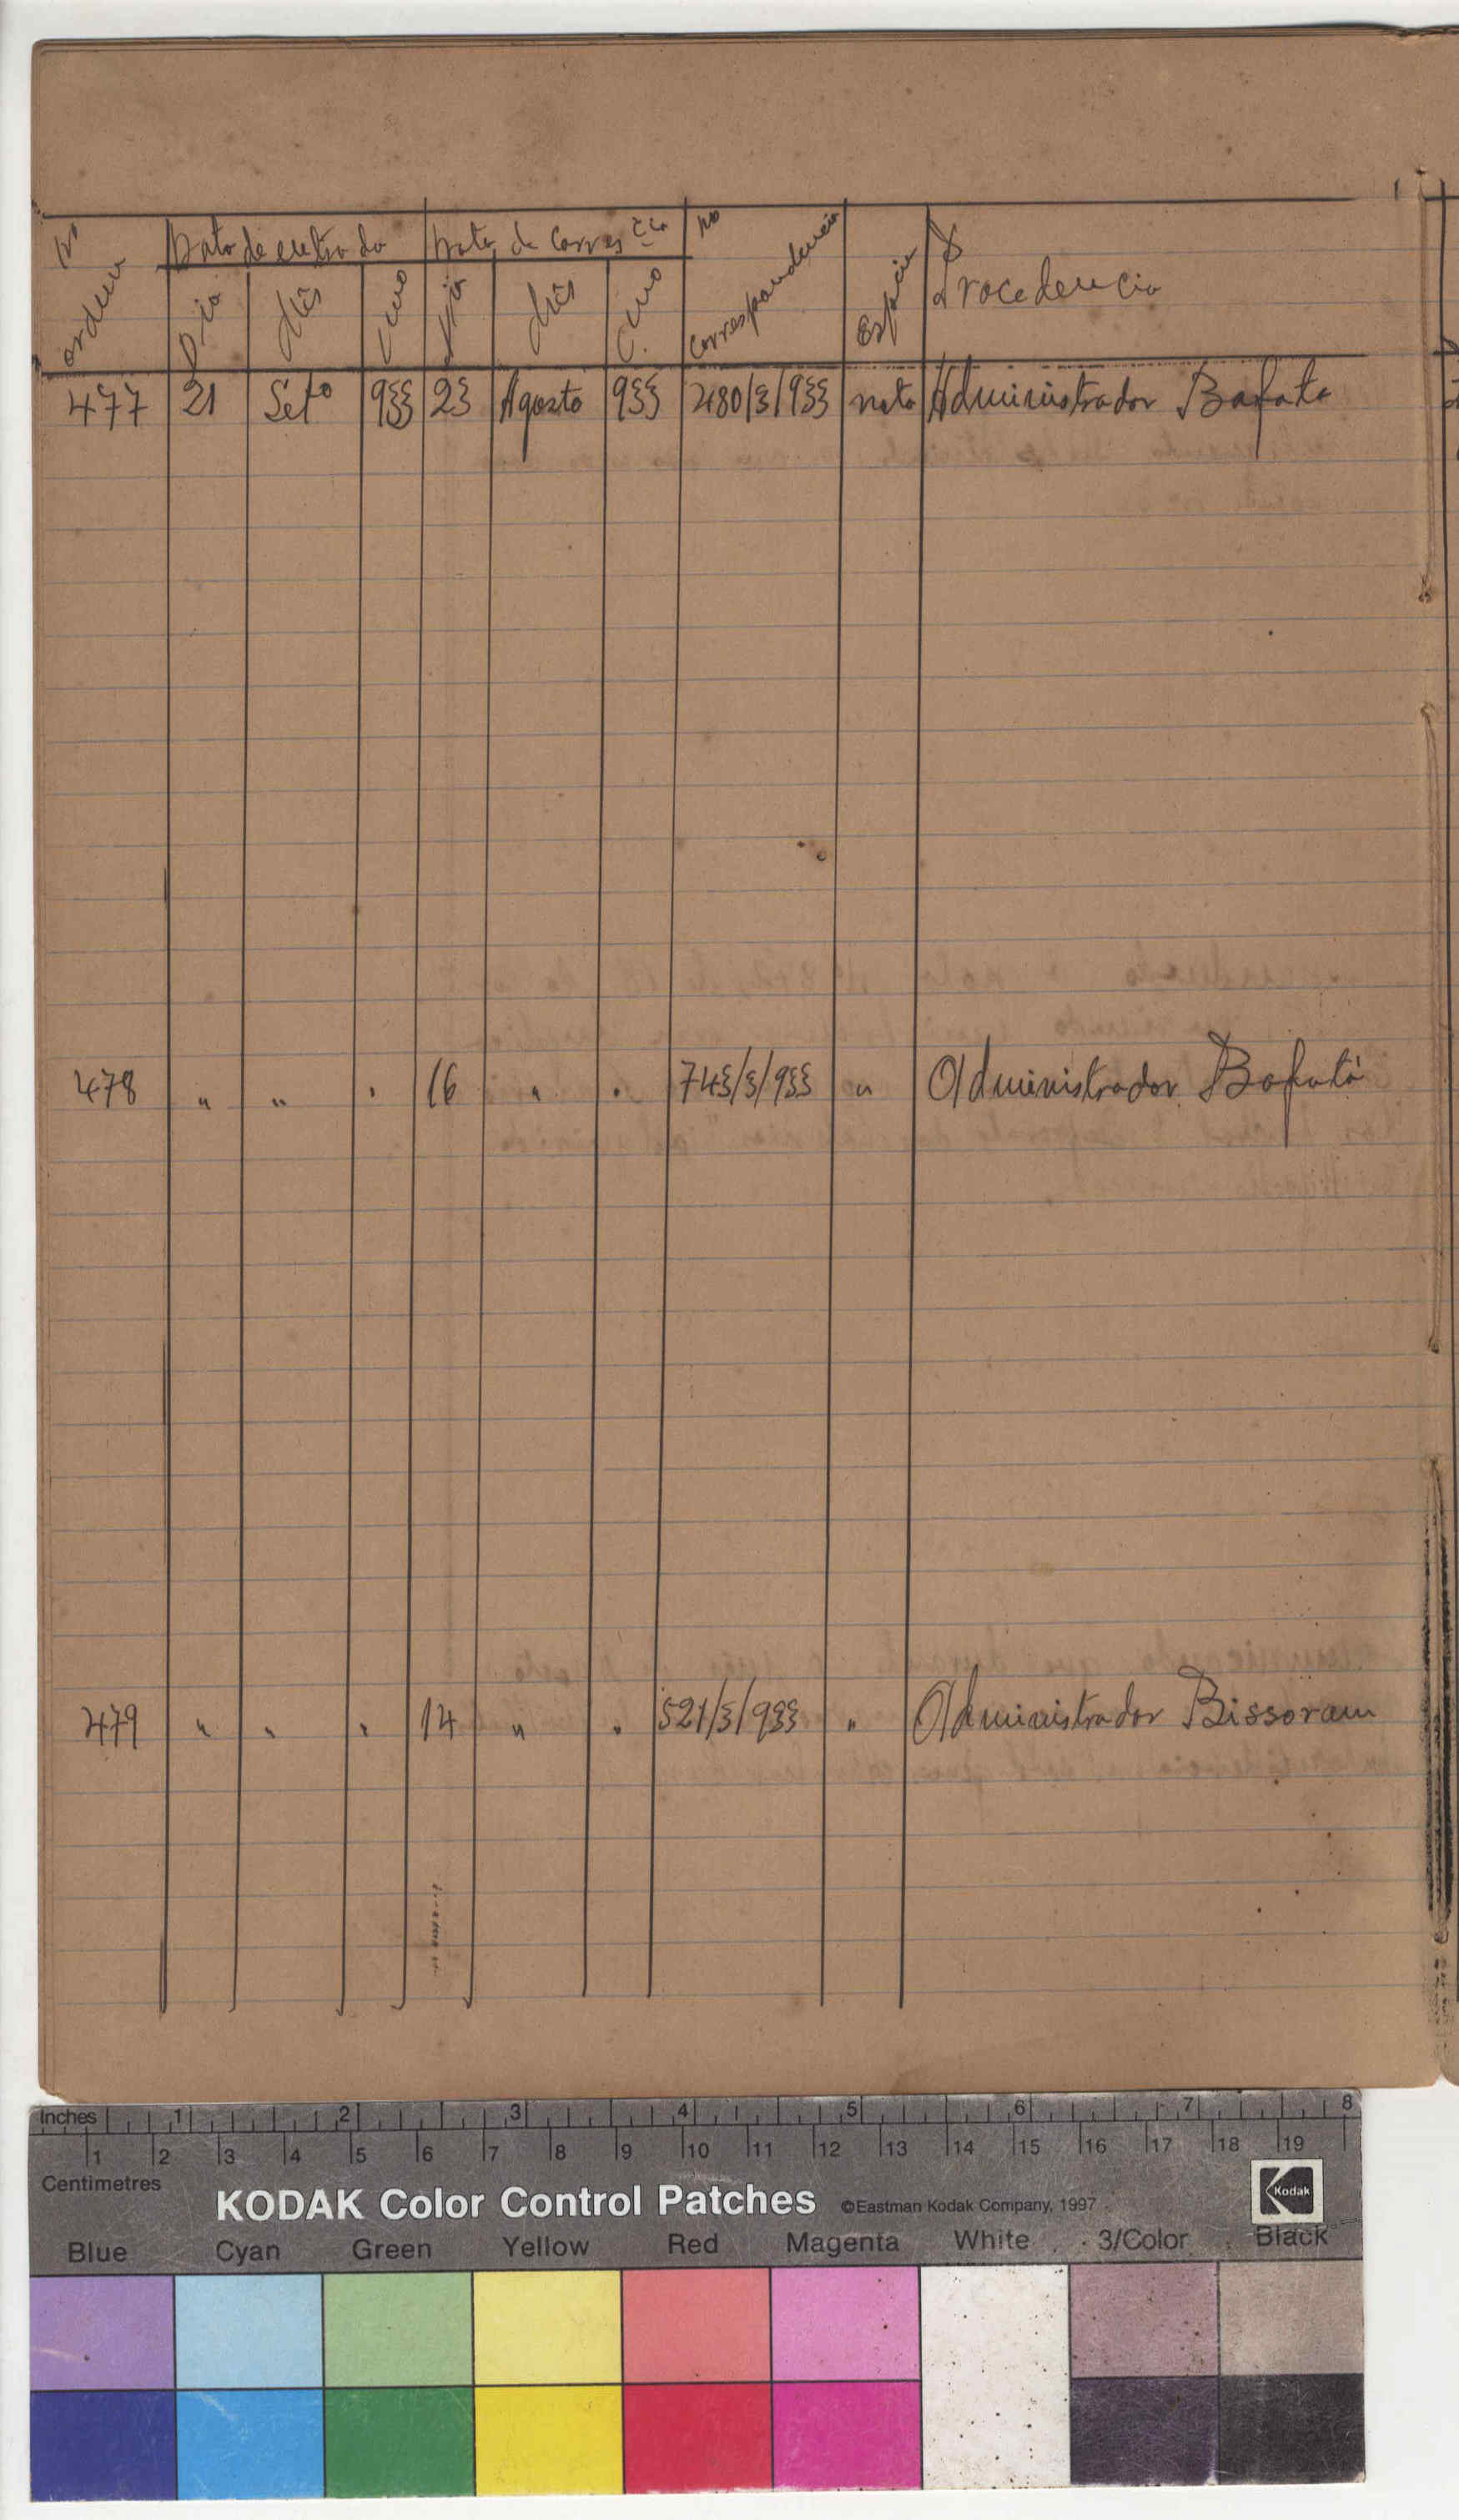 Nº ordem Data de entrada Data de Corres cia Nº Correspondencia Especie Procedencia
Dia Mês Ano Dia Mês Ano
477 21 Setº 933 23 Agosto 933 480/3/933 nota Administrador Bafata
478 " " " 16 " " 743/3/933 " Administrador Bafatá
479 " " " 14 " " 521/3/933 " Administrador Bissoram
Inches 1 2 3 4 5 6 7 8
1 2 3 4 5 6 7 8 9 10 11 12 13 14 15 16 17 18 19
Centimetres
KODAK Color Control Patches ©Eastman Kodak Company, 1997 Kodak
Blue Cyan Green Yellow Red Magenta White 3/Color Black